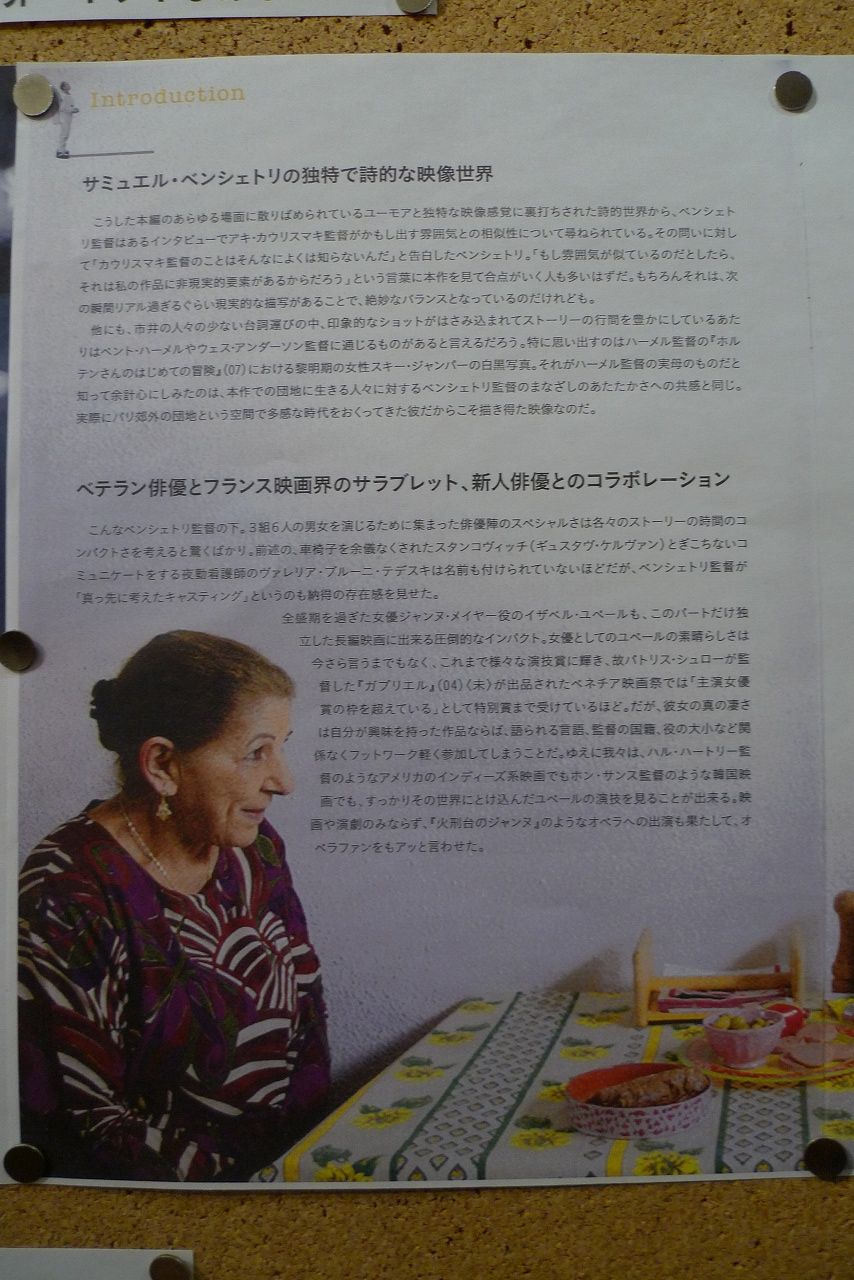 Introduction
サミュエル・ベンシェトリの独特で詩的な映像世界
こうした本編のあらゆる場面に散りばめられているユーモアと独特な映像感覚に裏打ちされた詩的世界から、ベンシェト
リ監督はあるインタビューでアキ・カウリスマキ監督がかもし出す雰囲気との相似性について尋ねられている。その問いに対し
て「カウリスマキ監督のことはそんなによくは知らないんだ」と告白したベンシェトリ。「もし雰囲気が似ているのだとしたら、
それは私の作品に非現実的要素があるからだろう」という言葉に本作を見て合点がいく人も多いはずだ。もちろんそれは、次
の瞬間リアル過ぎるぐらい現実的な描写があることで、絶妙なバランスとなっているのだけれども。
他にも、市井の人々の少ない台詞運びの中、印象的なショットがはさみ込まれてストーリーの行間を豊かにしているあた
りはベント・ハーメルやウェス・アンダーソン監督に通じるものがあると言えるだろう。特に思い出すのはハーメル監督の『ホル
テンさんのはじめての冒険』(07)における黎明期の女性スキー・ジャンパーの白黒写真。それがハーメル監督の実母のものだと
知って余計心にしみたのは、本作での団地に生きる人々に対するベンシェトリ監督のまなざしのあたたかさへの共感と同じ。
実際にパリ郊外の団地という空間で多感な時代をおくってきた彼だからこそ描き得た映像なのだ。
ベテラン俳優とフランス映画界のサラブレット、新人俳優とのコラボレーション
こんなベンシェトリ監督の下。3組6人の男女を演じるために集まった俳優陣のスペシャルさは各々のストーリーの時間のコ
ンパクトさを考えると驚くばかり。前述の、車椅子を余儀なくされたスタンコヴィッチ(ギュスタヴ・ケルヴァン)とぎこちないコ
ミュニケートをする夜勤看護師のヴァレリア・ブルーニ・テデスキは名前も付けられていないほどだが、ベンシェトリ監督が
「真っ先に考えたキャスティング」というのも納得の存在感を見せた。
全盛期を過ぎた女優ジャンヌ・メイヤー役のイザベル・ユペールも、このパートだけ独
立した長編映画に出来る圧倒的なインパクト。女優としてのユペールの素晴らしさは
今さら言うまでもなく、これまで様々な演技賞に輝き、故パトリス・シュローが監
督した『ガブリエル』(04)〈未〉が出品されたベネチア映画祭では「主演女優
賞の枠を超えている」として特別賞まで受けているほど。だが、彼女の真の凄さ
は自分が興味を持った作品ならば、語られる言語、監督の国籍、役の大小など関
係なくフットワーク軽く参加してしまうことだ。ゆえに我々は、ハル・ハートリー監
督のようなアメリカのインディーズ系映画でもホン・サンス監督のような韓国映
画でも、すっかりその世界にとけ込んだユペールの演技を見ることが出来る。映
画や演劇のみならず、『火刑台のジャンヌ』のようなオペラへの出演も果たして、オ
ペラファンをもアッと言わせた。